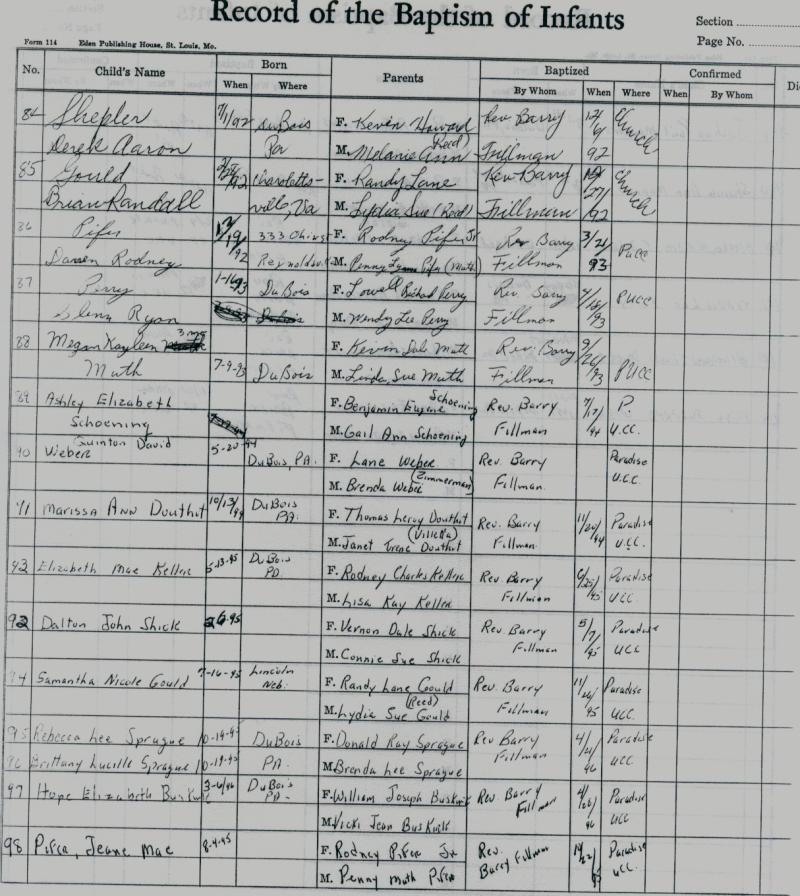 Record of the Baptism of Infants
Section
Page No.
Form 114 Eden Publishing House, St. Louis, Mo.
No. Child's Name Born Parents Baptized Confirmed
When Where By Whom When Where When By Whom
84 Shepler 7/1/92 DuBois F. Kevin Howard Rev. Barry 12/ Church
Derek Aaron Pa M. Melanie Ann (Reed) Fillman 92
85 Gould 92 Charolotts- F. Randy Lane Rev Barry 27/ Church
Brian Randall ville, Va M. Lydia Sue (Reed) Fillman 92
86 Pifer 12/19/92 333 F. Rodney Pifer Jr Rev Barry 3/21 PUCC
Darren Rodney M. Penny Lynn Pifer (Muth) Fillman 93
87 Perry 1-16-93 DuBois F. Lowell Richard Perry Rev. Barry 4/18/93 PUCC
Glenn Ryan M. Wendy Lee Perry Fillman
88 Megan Kayleen F. Kevin Dale Muth Rev. Barry 9/26/93
Muth 7-9-93 DuBois M. Linda Sue Muth Fillman PUCC
89 Ashley Elizabeth F. Benjamin Eugene Schoening Rev. Barry 7/17/94 P.
Schoening M. Gail Ann Schoening Fillman U.CC.
90 Weber Quinton David 5-20-94 DuBois, PA. F. Lane Weber Rev. Barry Paradise
M. Brenda Weber (Zimmerman) Fillman U.C.C.
91 Marissa Ann Douthit 10/13/94 DuBois PA. F. Thomas Leroy Douthit Rev. Barry 11/20/94 Paradise
M. Janet Irene Douthit (Villella) Fillman U.C.C.
92 Elizabeth Mae Keller 5-13-95 DuBois PA. F. Rodney Charles Keller Rev. Barry 6/25/95 Paradise
M. Lisa Kay Keller Fillman UCC.
93 Dalton John Shick 95 F. Vernon Dale Shick Rev Barry 5/7/95 Paradise
M. Connie Sue Shick Fillman UCC
94 Samantha Nicole Gould 7-16-95 Lincoln Neb. F. Randy Lane Gould Rev. Barry 11/ 95 Paradise
M. Lydia Sue Gould (Reed) Fillman UCC.
95 Rebecca Lee Sprague 10-19-95 DuBois F. Donald Ray Sprague Rev Barry 4/21 Paradise
96 Brittany Lucille Sprague 10-19-95 PA. M. Brenda Lee Sprague Fillman 96 UCC
97 Hope Elizabeth Buskirk 3-6/96 DuBois PA. F. William Joseph Buskirk Rev. Barry 4/28/ Paradise
M. Vicki Jean Buskirk Fillman 96 UCC
98 Pifer, Jeane Mae 8-4-95 F. Rodney Pifer Jr Rev. Paradise
M. Penny Muth Pifer Barry Fillman UCC.